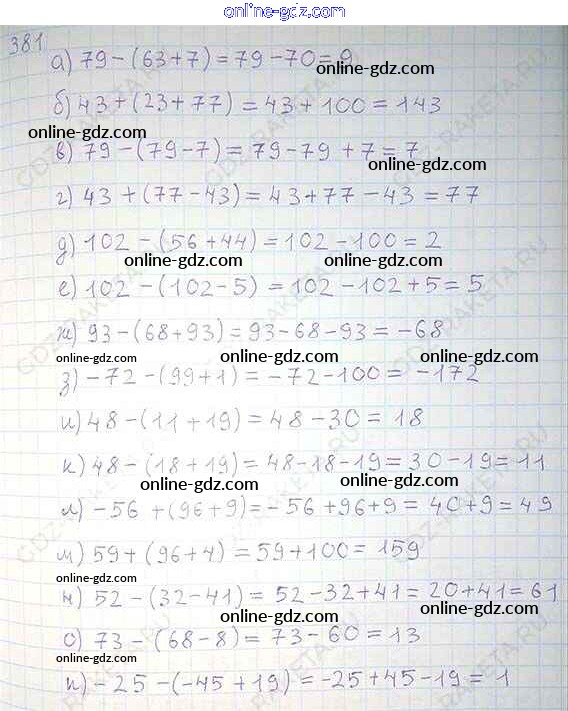 online-gdz.com
381
а) 79 - (63 + 7) = 79 - 70 = 9
online-gdz.com
б) 43 + (23 + 77) = 43 + 100 = 143
online-gdz.com
в) 79 - (79 - 7) = 79 - 79 + 7 = 7
online-gdz.com
г) 43 + (77 - 43) = 43 + 77 - 43 = 77
д) 102 - (56 + 44) = 102 - 100 = 2
online-gdz.com online-gdz.com
е) 102 - (102 - 5) = 102 - 102 + 5 = 5
ж) 93 - (68 + 93) = 93 - 68 - 93 = -68
online-gdz.com online-gdz.com online-gdz.com
з) -72 - (99 + 1) = -72 - 100 = -172
и) 48 - (11 + 19) = 48 - 30 = 18
к) 48 - (18 + 19) = 48 - 18 - 19 = 30 - 19 = 11
online-gdz.com online-gdz.com
л) -56 + (96 + 9) = -56 + 96 + 9 = 40 + 9 = 49
м) 59 + (96 + 4) = 59 + 100 = 159
online-gdz.com
н) 52 - (32 - 41) = 52 - 32 + 41 = 20 + 41 = 61
online-gdz.com online-gdz.com
о) 73 - (68 - 8) = 73 - 60 = 13
online-gdz.com
п) -25 - (-45 + 19) = -25 + 45 - 19 = 1
online-gdz.com online-gdz.com
GDZ-RAKETA.RU